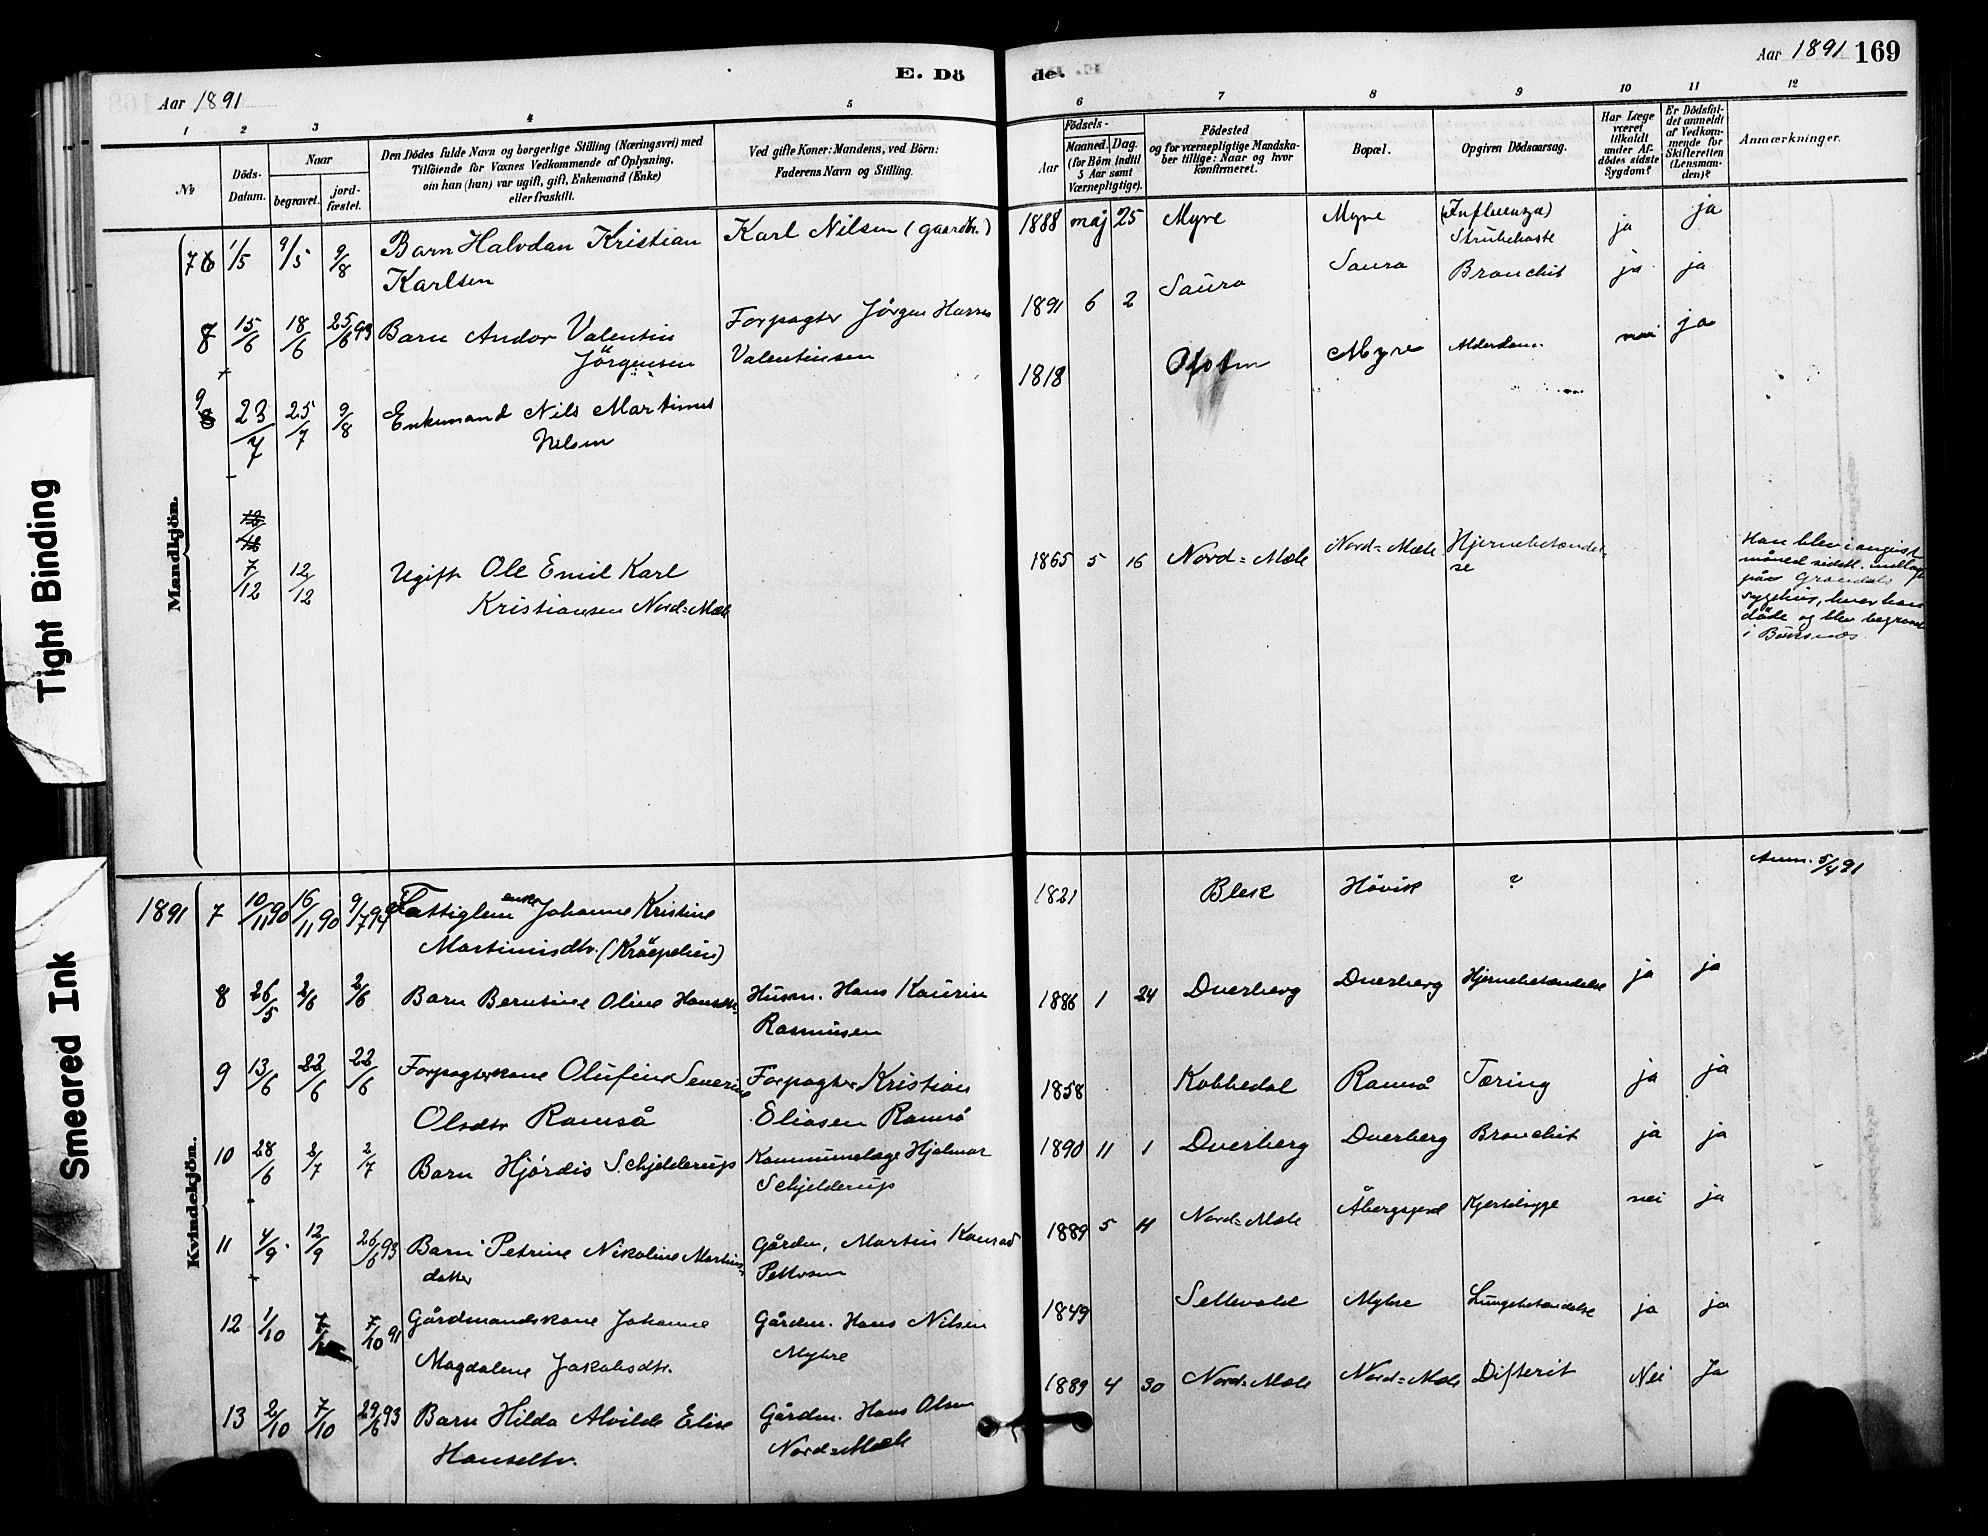 Tight Binding
Smeared Ink
E. Dö
de.
Aar 1891
Aar 1891 169
1 2 3 4 5
6 7 8 9 10 11 12
No
Döds-
Datum.
Naar
begravet.
jord-
fæstet.
Den Dödes fulde Navn og borgerlige Stilling (Næringsvei) med
Tilföiende for Voxnes Vedkommende af Oplysning,
om han (hun) var ugift, gift, Enkemand (Enke)
eller fraskilt.
Ved gifte Koner: Mandens, ved Börn:
Faderens Navn og Stilling.
Födsels-
Aar
Maaned.
Dag.
(for Börn indtil
5 Aar samt
Værnepligtige).
Födested
og for værnepligtige Mandska-
ber tillige: Naar og hvor
konfirmeret.
Bopæl.
Opgiven Dödsaarsag.
Har Læge
været
tilkaldt
under Af-
dödes sidste
Sygdom?
Er Dödsfal-
det anmeldt
af Vedkom-
mende for
Skifteretten
(Lensman-
den)?
Anmærkninger.
Mandkjön.
7 1/5 9/5 9/8 Barn Halvdan Kristian Karl Nilsen (gaardbr.) 1888 maj 25 Myre Myre (Influenza) ja ja
Karlsen Strubehoste
8 15/6 18/6 25/6 93 Barn Andor Valentin Forpagter Jörgen Hansen 1891 6 2 Saura Saura Bronchit ja ja
Jörgensen Valentinsen
9 23/7 25/7 9/8 Enkemand Nils Martinus 1818 Ofoten Myre Alderdom nei ja
Nilsen
7/12 12/12 Ugift Ole Emil Karl 1865 5 16 Nord=Mæle Nord=Mæle Hjernebetændel-
Kristiansen Nord=Mæle se
Han blev i august
måned sidstl. indlagt
på Grøndals
sygehus, hvor han
döde og blev begravet
i Buksnæs.
Kvindekjön.
1891 7 10/11 90 16/11 90 9/7 94 Fattiglem enke Johanne Kristine 1821 Blek Hövik ? Anm. 5/4 91
Martinusdtr. (Kräepelien)
8 26/5 2/6 2/6 Barn Berntine Oline Hansdtr. Husm. Hans Kaurin 1886 1 24 Dverberg Dverberg Hjernebetændelse ja ja
Rasmusen
9 13/6 22/6 22/6 Forpagterkone Olufine Severine Forpagter Kristian 1858 Kobbedal Ramså Tæring ja ja
Olsdtr Ramså Eliasen Ramså
10 28/6 2/7 2/7 Barn Hjördis Schjelderup Kommunelæge Hjalmar 1890 11 1 Dverberg Dverberg Bronchit ja ja
Schjelderup
11 4/9 12/9 26/6 93 Barn Petrine Nikoline Martins- Gårdm. Martin Konrad 1889 5 11 Nord=Mæle Åbergsjord Kjertelsyge nei ja
datter Pettersen
12 1/10 7/10 7/10 91 Gårdmandskone Johanne Gårdm. Hans Nilsen 1849 Sellevold Myhre Lungebetændelse ja ja
Magdalene Jakobsdtr. Myhre
13 2/10 7/10 29/6 93 Barn Hilda Alvilde Elise Gårdm. Hans Olsen 1889 4 30 Nord=Mæle Nord=Mæle Difterit Nei Ja
Hansdtr. Nord=Mæle